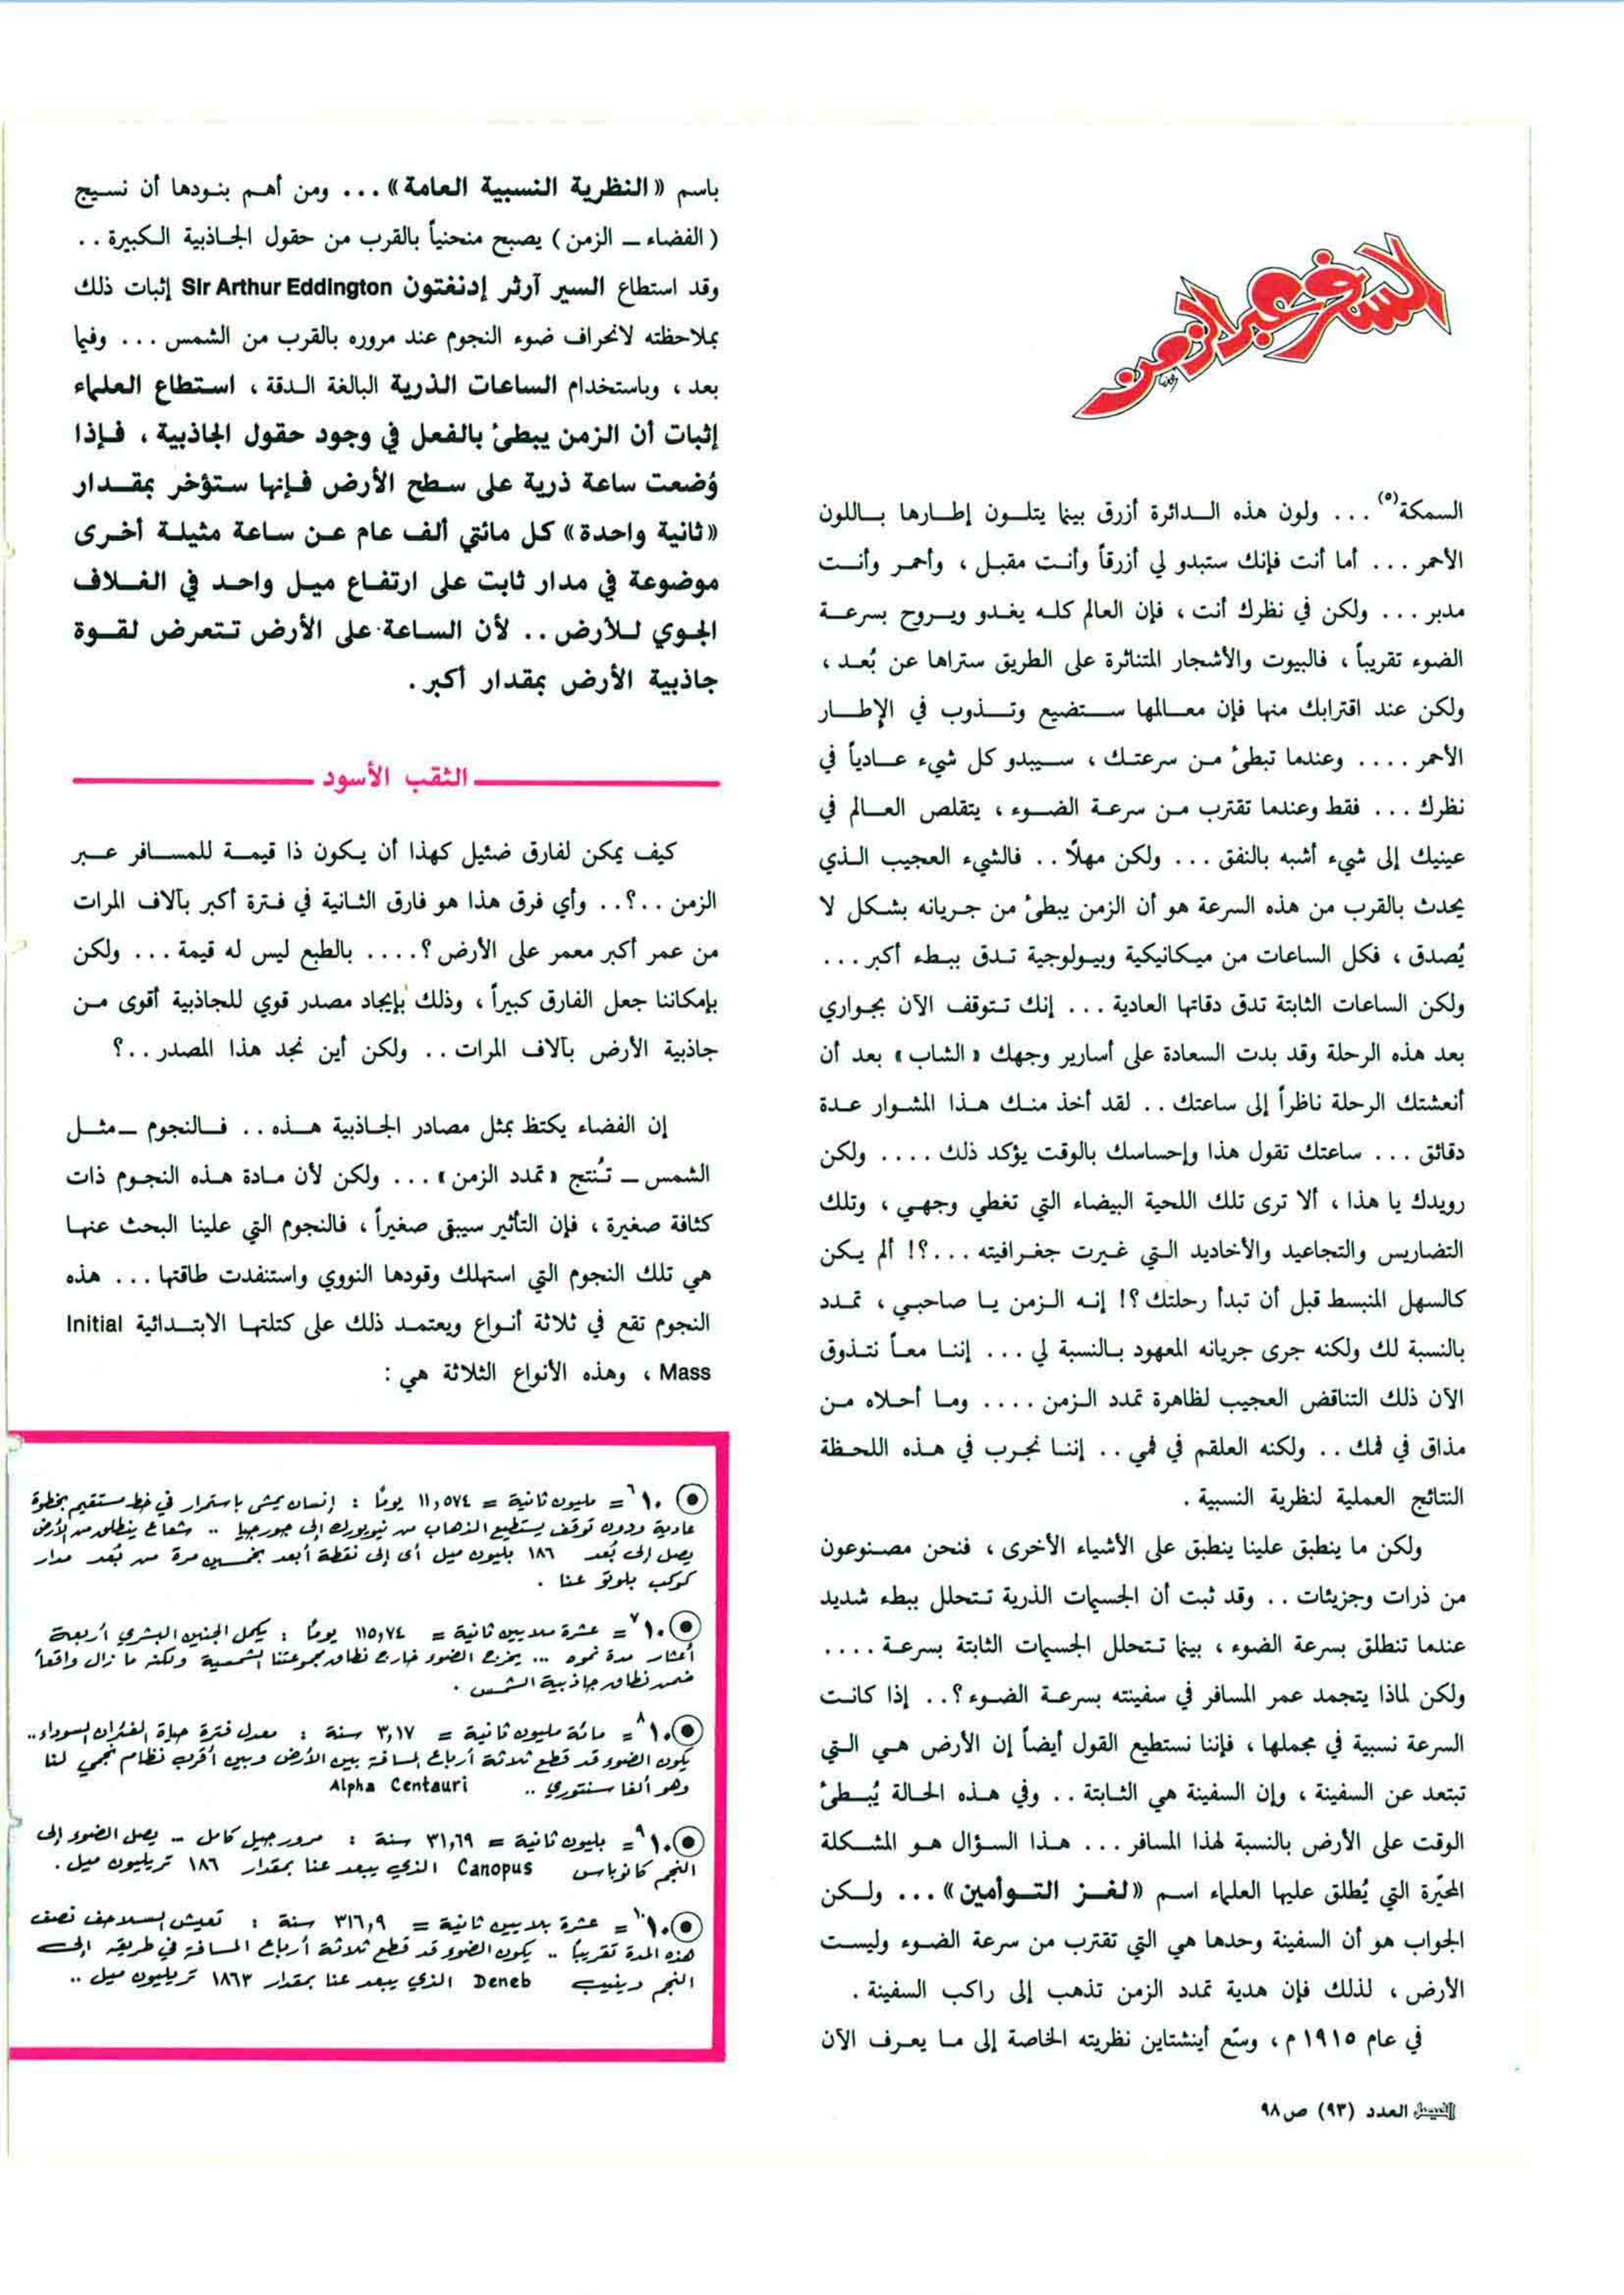 السفر عبر الزمن
السمكة(٥) ... ولون هذه الدائرة أزرق بينما يتلون إطارها باللون
الأحمر ... أما أنت فإنك ستبدو لي أزرقاً وأنت مقبل ، وأحمر وأنت
مدبر ... ولكن في نظرك أنت ، فإن العالم كله يغدو ويروح بسرعة
الضوء تقريباً ، فالبيوت والأشجار المتناثرة على الطريق ستراها عن بُعد ،
ولكن عند اقترابك منها فإن معالمها ستضيع وتذوب في الإطار
الأحمر .... وعندما تبطئ من سرعتك ، سيبدو كل شيء عادياً في
نظرك ... فقط وعندما تقترب من سرعة الضوء ، يتقلص العالم في
عينيك إلى شيء أشبه بالنفق ... ولكن مهلاً .. فالشيء العجيب الذي
يحدث بالقرب من هذه السرعة هو أن الزمن يبطئ من جريانه بشكل لا
يُصدق ، فكل الساعات من ميكانيكية وبيولوجية تدق ببطء أكبر ...
ولكن الساعات الثابتة تدق دقاتها العادية ... إنك تتوقف الآن بجواري
بعد هذه الرحلة وقد بدت السعادة على أسارير وجهك «الشاب» بعد أن
أنعشتك الرحلة ناظراً إلى ساعتك .. لقد أخذ منك هذا المشوار عدة
دقائق ... ساعتك تقول هذا وإحساسك بالوقت يؤكد ذلك .... ولكن
رويدك يا هذا ، ألا ترى تلك اللحية البيضاء التي تغطي وجهي ، وتلك
التضاريس والتجاعيد والأخاديد التي غيرت جغرافيته ...؟! ألم يكن
كالسهل المنبسط قبل أن تبدأ رحلتك ؟! إنه الزمن يا صاحبي ، تمدد
بالنسبة لك ولكنه جرى جريانه المعهود بالنسبة لي ... إننا معاً نتذوق
الآن ذلك التناقض العجيب لظاهرة تمدد الزمن .... وما أحلاه من
مذاق في فمك .. ولكنه العلقم في فمي .. إننا نجرب في هذه اللحظة
النتائج العملية لنظرية النسبية .
ولكن ما ينطبق علينا ينطبق على الأشياء الأخرى ، فنحن مصنوعون
من ذرات وجزيئات .. وقد ثبت أن الجسيمات الذرية تتحلل ببطء شديد
عندما تنطلق بسرعة الضوء ، بينما تتحلل الجسيمات الثابتة بسرعة ....
ولكن لماذا يتجمد عمر المسافر في سفينته بسرعة الضوء ؟.. إذا كانت
السرعة نسبية في مجملها ، فإننا نستطيع القول أيضاً إن الأرض هي التي
تبتعد عن السفينة ، وإن السفينة هي الثابتة .. وفي هذه الحالة يُبطئ
الوقت على الأرض بالنسبة لهذا المسافر ... هذا السؤال هو المشكلة
المحيّرة التي يُطلق عليها العلماء اسم «لغز التوأمين» ... ولكن
الجواب هو أن السفينة وحدها هي التي تقترب من سرعة الضوء وليست
الأرض ، لذلك فإن هدية تمدد الزمن تذهب إلى راكب السفينة .
في عام ١٩١٥ م ، وسّع أينشتاين نظريته الخاصة إلى ما يعرف الآن
باسم «النظرية النسبية العامة» ... ومن أهم بنودها أن نسيج
(الفضاء ــ الزمن) يصبح منحنياً بالقرب من حقول الجاذبية الكبيرة ..
وقد استطاع السير آرثر إدنغتون Sir Arthur Eddington إثبات ذلك
بملاحظته لانحراف ضوء النجوم عند مروره بالقرب من الشمس ... وفيما
بعد ، وباستخدام الساعات الذرية البالغة الدقة ، استطاع العلماء
إثبات أن الزمن يبطئ بالفعل في وجود حقول الجاذبية ، فإذا
وُضعت ساعة ذرية على سطح الأرض فإنها ستؤخر بمقدار
«ثانية واحدة» كل مائتي ألف عام عن ساعة مثيلة أخرى
موضوعة في مدار ثابت على ارتفاع ميل واحد في الغلاف
الجوي للأرض .. لأن الساعة على الأرض تتعرض لقوة
جاذبية الأرض بمقدار أكبر .
الثقب الأسود
كيف يمكن لفارق ضئيل كهذا أن يكون ذا قيمة للمسافر عبر
الزمن ..؟.. وأي فرق هذا هو فارق الثانية في فترة أكبر بآلاف المرات
من عمر أكبر معمر على الأرض ؟.... بالطبع ليس له قيمة ... ولكن
بإمكاننا جعل الفارق كبيراً ، وذلك بإيجاد مصدر قوي للجاذبية أقوى من
جاذبية الأرض بآلاف المرات .. ولكن أين نجد هذا المصدر ..؟
إن الفضاء يكتظ بمثل مصادر الجاذبية هذه .. فالنجوم ــ مثل
الشمس ــ تُنتج «تمدد الزمن» ... ولكن لأن مادة هذه النجوم ذات
كثافة صغيرة ، فإن التأثير سيبقى صغيراً ، فالنجوم التي علينا البحث عنها
هي تلك النجوم التي استهلك وقودها النووي واستنفدت طاقتها ... هذه
النجوم تقع في ثلاثة أنواع ويعتمد ذلك على كتلتها الابتدائية Initial
Mass ، وهذه الأنواع الثلاثة هي :
١٠⁶ = مليون ثانية = ١١,٥٧٤ يوماً : إنسان يمشي باستمرار في خط مستقيم بخطوة
عادية ودون توقف يستطيع الذهاب من نيويورك إلى جورجيا .. شعاع ينطلق من الأرض
يصل إلى بُعد ١٨٦ بليون ميل أي إلى نقطة أبعد بخمسين مرة من بُعد مدار
كوكب بلوتو عنا .
١٠⁷ = عشرة ملايين ثانية = ١١٥,٧٤ يوماً : يكمل الجنين البشري أربعة
أعشار مدة نموه ... يخرج الضوء خارج نطاق مجموعتنا الشمسية ولكنه ما زال واقعاً
ضمن نطاق جاذبية الشمس .
١٠⁸ = مائة مليون ثانية = ٣,١٧ سنة : معدل فترة حياة الفئران السوداء..
يكون الضوء قد قطع ثلاثة أرباع المسافة بين الأرض وبين أقرب نظام نجمي لنا
وهو ألفا سنتوري .. Alpha Centauri
١٠⁹ = بليون ثانية = ٣١,٦٩ سنة : مرور جيل كامل .. يصل الضوء إلى
النجم كانوباس Canopus الذي يبعد عنا بمقدار ١٨٦ تريليون ميل .
١٠¹⁰ = عشرة بلايين ثانية = ٣١٦,٩ سنة : تعيش السلاحف نصف
هذه المدة تقريباً .. يكون الضوء قد قطع ثلاثة أرباع المسافة في طريقه إلى
النجم دينيب Deneb الذي يبعد عنا بمقدار ١٨٦٣ تريليون ميل ..
الفيصل العدد (٩٣) ص ٩٨